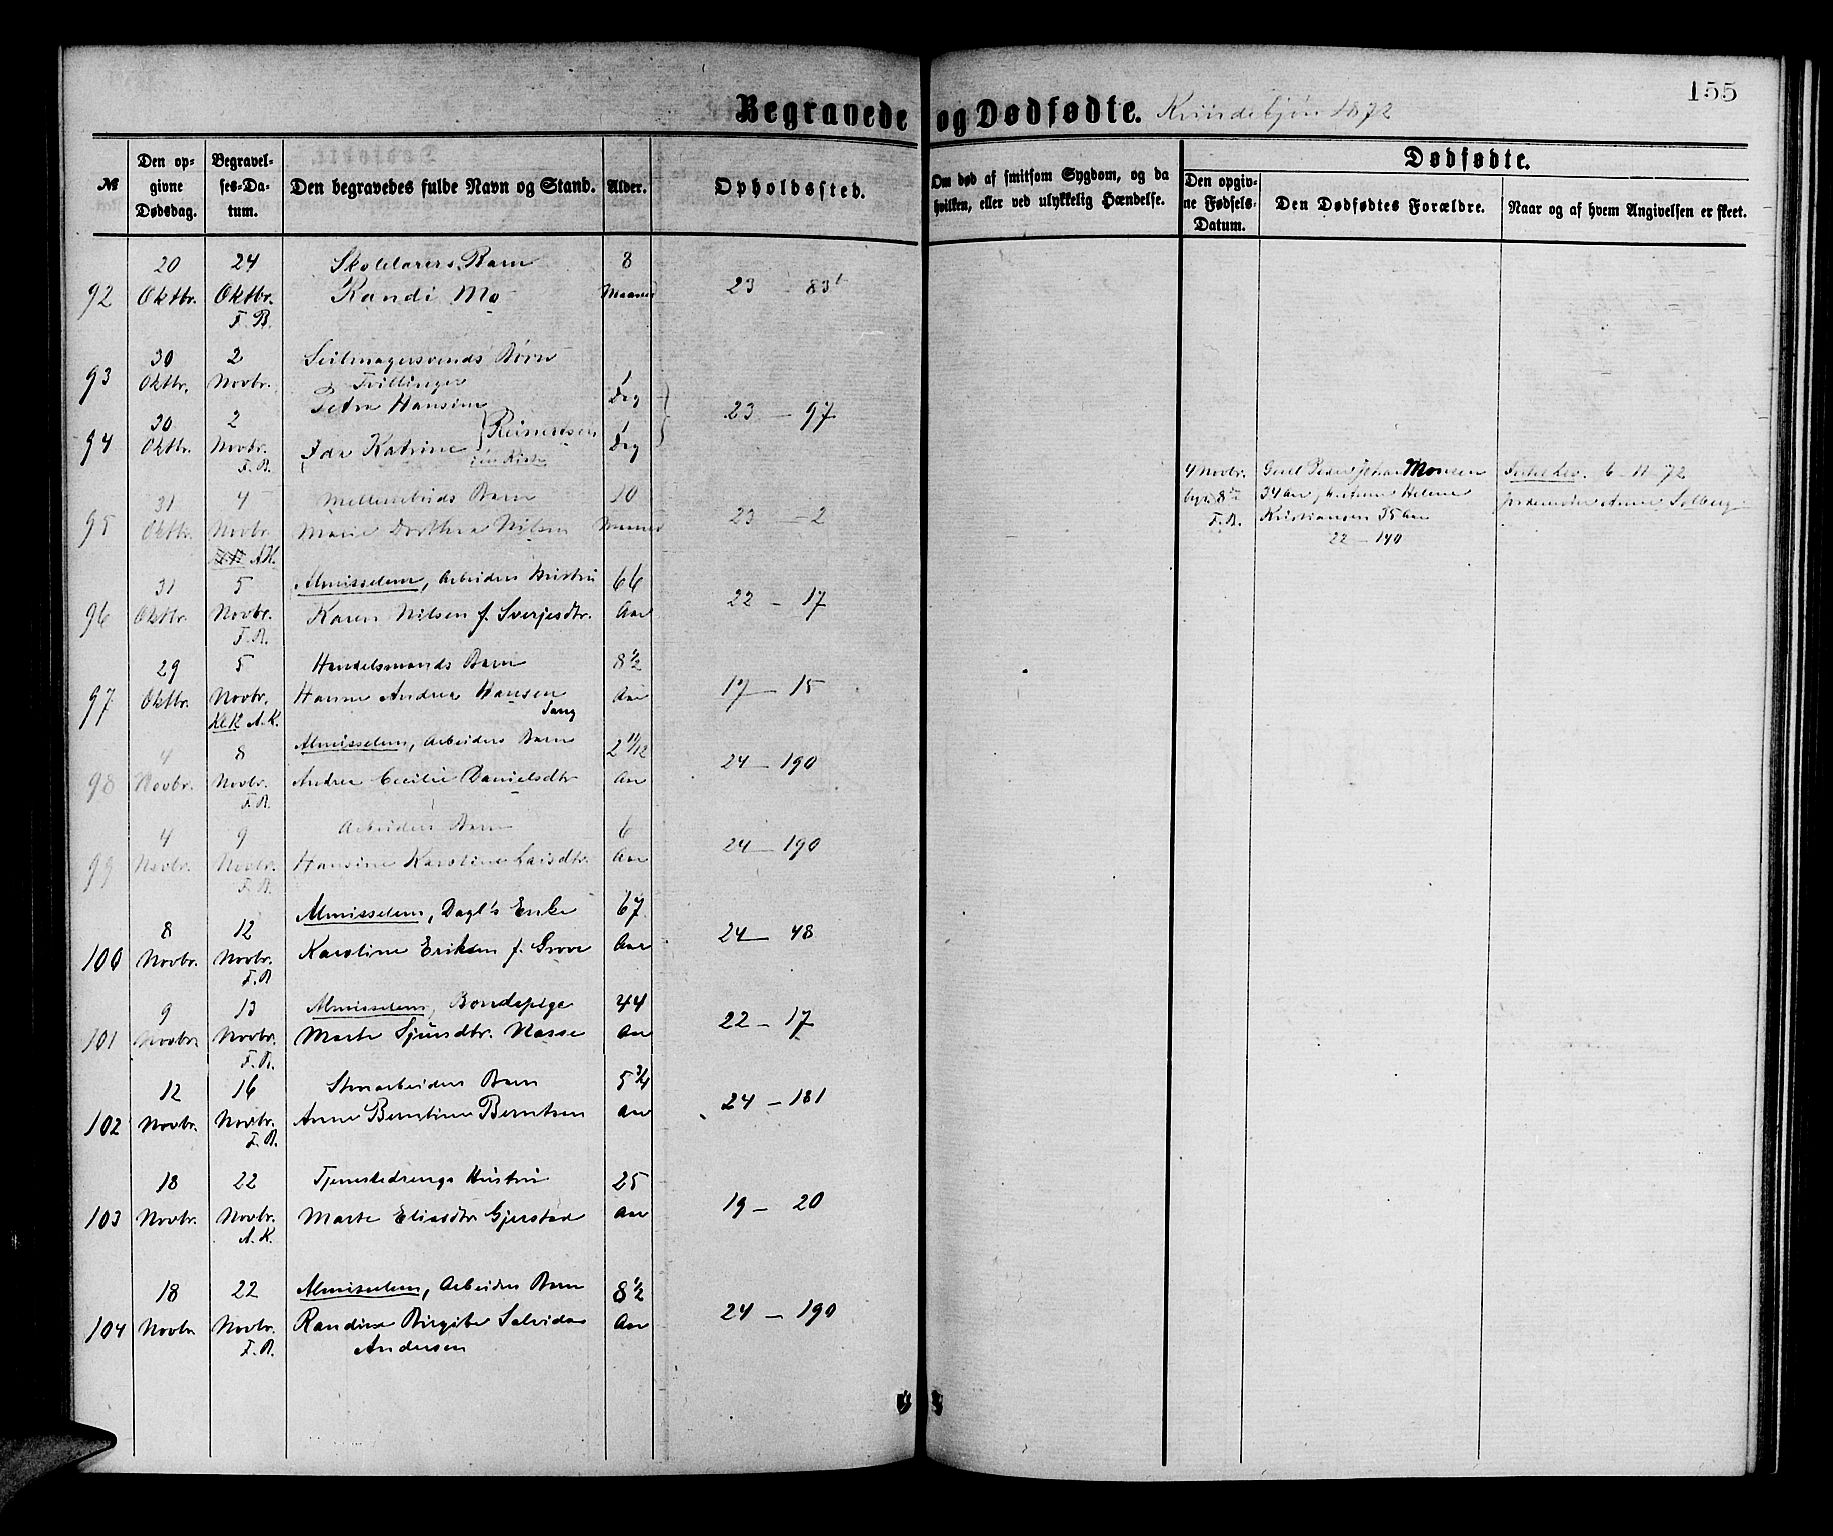 155
Begravede og Dødfødte. Kvindekjøn 1872
№
Den opgivne Dødsdag.
Begravelses-Datum.
Den begravedes fulde Navn og Stand.
Alder.
Opholdssted.
Om død af smitsom Sygdom, og da hvilken, eller ved ulykkelig Hændelse.
Dødfødte.
Den opgivne Fødsels-Datum.
Den Dødfødtes Forældre.
Naar og af hvem Angivelsen er skeet.
20 24 Skolelærers Barn 8
92 Oktbr. Oktbr. Randi Mo Maaned 23 - 83
F. B.
30 2 Seilmagersvends Børn
93 Oktbr. Novbr. Tvillinger 1
Petra Hansine Dag 23 - 97
30 2 1
94 Oktbr. Novbr. Ida Katrine Reinertsen Dag
F. B.
31 4 Barn 10
95 Oktbr. Novbr. Marie Dorthea Nilsen Maaned 23 - 2
A.K.
31 5 Almisselem, Arbeiders Hustru 66
96 Oktbr. Novbr. Karen Nilsen f. Sverjesdtr. Aar 22 - 17
F. B.
29 5 Handelsmands Barn 8 1/2
97 Oktbr. Novbr. Hanne Andrea Hansen Aar 17 - 15
A. K.
4 8 Almisselem, Arbeiders Barn 2 11/12
98 Novbr. Novbr. Andrea Cecilie Danielsdtr Aar 24 - 190
F. B.
4 9 Arbeiders Barn 6
99 Novbr. Novbr. Hansine Karoline Larsdtr. Aar 24 - 190
F. B.
8 12 Almisselem, Dagl's Enke 67
100 Novbr. Novbr. Karoline Eriksen f. Grove Aar 24 - 48
F. B
9 13 Almisselem, Bondepige 44
101 Novbr. Novbr. Marte Sjursdtr. Nasse Aar 22 - 17
F. B.
12 16 Barn 5 3/4
102 Novbr. Novbr. Anne Berntine Berntsen Aar 24 - 181
F. B.
18 22 Tjenestedrengs Hustru 25
103 Novbr. Novbr. Marte Eliasdtr Gjerstad Aar 19 - 20
A. K.
18 22 Almisselem, Arbeiders Barn 8 1/2
104 Novbr Novbr. Randine Birgitte Salvida Aar 24 - 190
F. B. Andersen
4 Novbr. Peder Johan Monsen 6-11-72
34 Aar, Helene Jordemoder Anne Solberg
F. B. Kristiansen 35 Aar
22 - 140